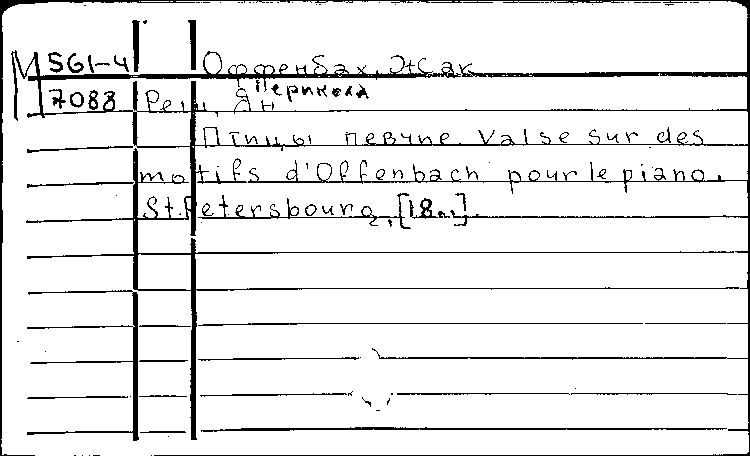 М 561-4 Оффенбах, Жак
"Перикола
7088 Реш, Ян
Птицы певчие. Valse sur des
motifs d'Offenbach pour le piano.
St.Petersbourg, [18..].